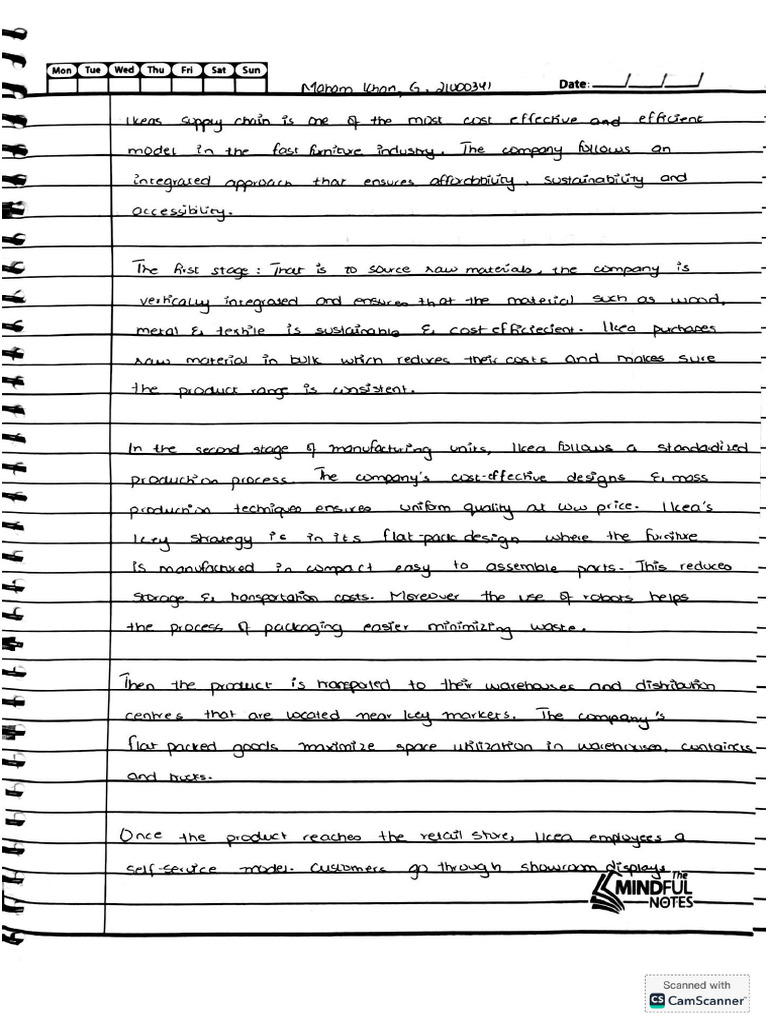 Mon Tue Wed Thu Fri Sat Sun
Maham Khan, G, 21U00341 Date: __/__/__
Ikeas supply chain is one of the most cost effective and efficient
model in the fast furniture industry. The company follows an
integrated approach that ensures affordability, sustainability and
accessibility.
The first stage: That is to source raw materials, the company is
vertically integrated and ensures that the material such as wood,
metal & textile is sustainable & cost efficiecient. Ikea purchases
raw material in bulk which reduces their costs and makes sure
the product range is consistent.
In the second stage of manufacturing units, Ikea follows a standardized
production process. The company's cost-effective designs & mass
production techniques ensures uniform quality at low price. Ikea's
key strategy is in its flat-pack design where the furniture
is manufactured in compact easy to assemble parts. This reduces
storage & transportation costs. Moreover the use of robots helps
the process of packaging easier minimizing waste.
Then the product is transported to their warehouses and distribution
centres that are located near key markets. The company's
flat packed goods maximize space utilization in warehouses, containers
and trucks.
Once the product reaches the retail store, Ikea employees a
self-service model. Customers go through showroom displays
The
MINDFUL
NOTES
Scanned with
CS CamScanner